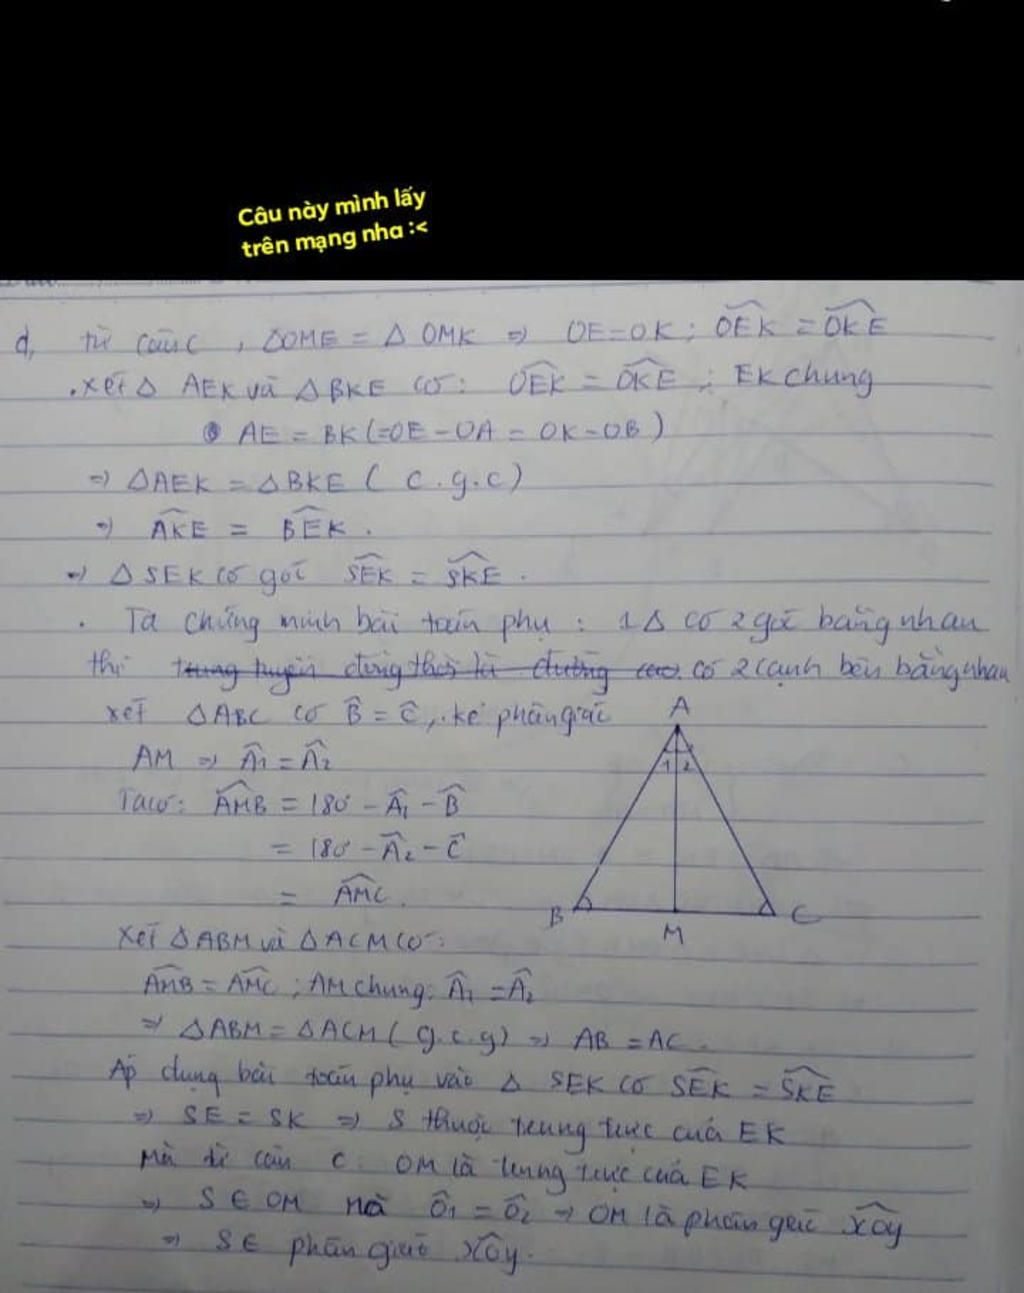 Câu này mình lấy
trên mạng nha :<
d, từ câu c, ΔOME = Δ OMK ⇒ OE=OK; \widehat{OEK} = \widehat{OKE}
.xét Δ AEK và Δ BKE có: \widehat{OEK} = \widehat{OKE} ; EK chung
AE = BK (=OE-OA = OK-OB)
⇒ ΔAEK = ΔBKE ( c.g.c)
⇒ \widehat{AKE} = \widehat{BEK}.
⇒ Δ SEK có góc \widehat{SEK} = \widehat{SKE}.
. Ta chứng minh bài toán phụ : 1Δ có 2 góc bằng nhau
thì trung tuyến đồng thời là đường cao có 2 cạnh bên bằng nhau
xét ΔABC có \widehat{B} = \widehat{C}, kẻ phân giác
AM ⇒ \widehat{A}_1 = \widehat{A}_2
Ta có: \widehat{AMB} = 180 - \widehat{A}_1 - \widehat{B}
= 180 - \widehat{A}_2 - \widehat{C}
= \widehat{AMC}.
A
1 2
B
M
C
Xét ΔABM và ΔACM có:
\widehat{AMB} = \widehat{AMC} ; AM chung; \widehat{A}_1 = \widehat{A}_2
⇒ ΔABM = ΔACM ( g.c.g) ⇒ AB = AC.
Áp dụng bài toán phụ vào Δ SEK có \widehat{SEK} = \widehat{SKE}
⇒ SE = SK ⇒ S thuộc trung trực của EK
Mà từ câu c: OM là trung trực của EK
⇒ S ∈ OM mà \widehat{O}_1 = \widehat{O}_2 ⇒ OM là phân giác \widehat{xOy}
⇒ S ∈ phân giác \widehat{xOy}.